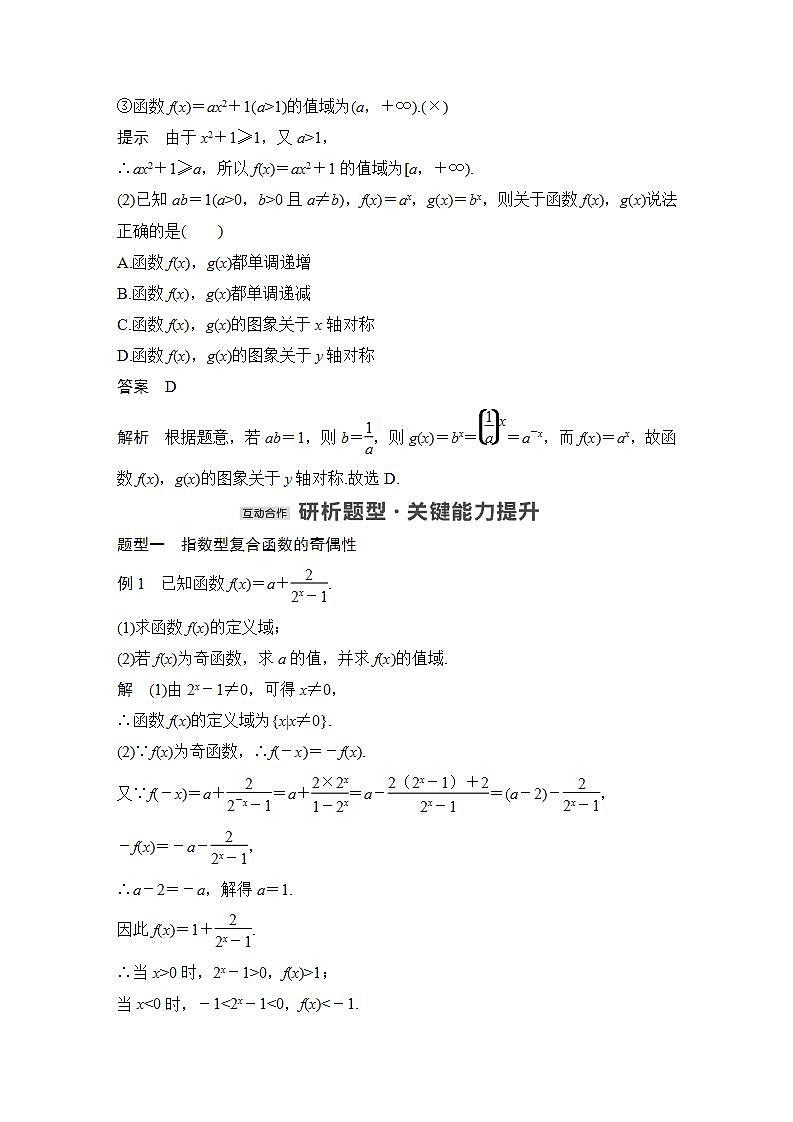 ③函数 f(x)=ax²+1(a>1)的值域为(a，+∞).(×)
提示　由于 x²+1≥1，又 a>1，
∴ax²+1≥a，所以 f(x)=ax²+1 的值域为[a，+∞).
(2)已知 ab=1(a>0，b>0 且 a≠b)，f(x)=aˣ，g(x)=bˣ，则关于函数 f(x)，g(x)说法
正确的是(　　)
A.函数 f(x)，g(x)都单调递增
B.函数 f(x)，g(x)都单调递减
C.函数 f(x)，g(x)的图象关于 x 轴对称
D.函数 f(x)，g(x)的图象关于 y 轴对称
答案　D
解析　根据题意，若 ab=1，则 b=1/a，则 g(x)=bˣ=(1/a)ˣ=a⁻ˣ，而 f(x)=aˣ，故函
数 f(x)，g(x)的图象关于 y 轴对称.故选 D.
互动合作 研析题型·关键能力提升
题型一　指数型复合函数的奇偶性
例 1　已知函数 f(x)=a+2/(2ˣ-1).
(1)求函数 f(x)的定义域；
(2)若 f(x)为奇函数，求 a 的值，并求 f(x)的值域.
解　(1)由 2ˣ-1≠0，可得 x≠0，
∴函数 f(x)的定义域为{x|x≠0}.
(2)∵f(x)为奇函数，∴f(-x)=-f(x).
又∵f(-x)=a+2/(2⁻ˣ-1)=a+(2×2ˣ)/(1-2ˣ)=a-(2（2ˣ-1）+2)/(2ˣ-1)=(a-2)-2/(2ˣ-1)，
-f(x)=-a-2/(2ˣ-1)，
∴a-2=-a，解得 a=1.
因此 f(x)=1+2/(2ˣ-1).
∴当 x>0 时，2ˣ-1>0，f(x)>1；
当 x<0 时，-1<2ˣ-1<0，f(x)<-1.